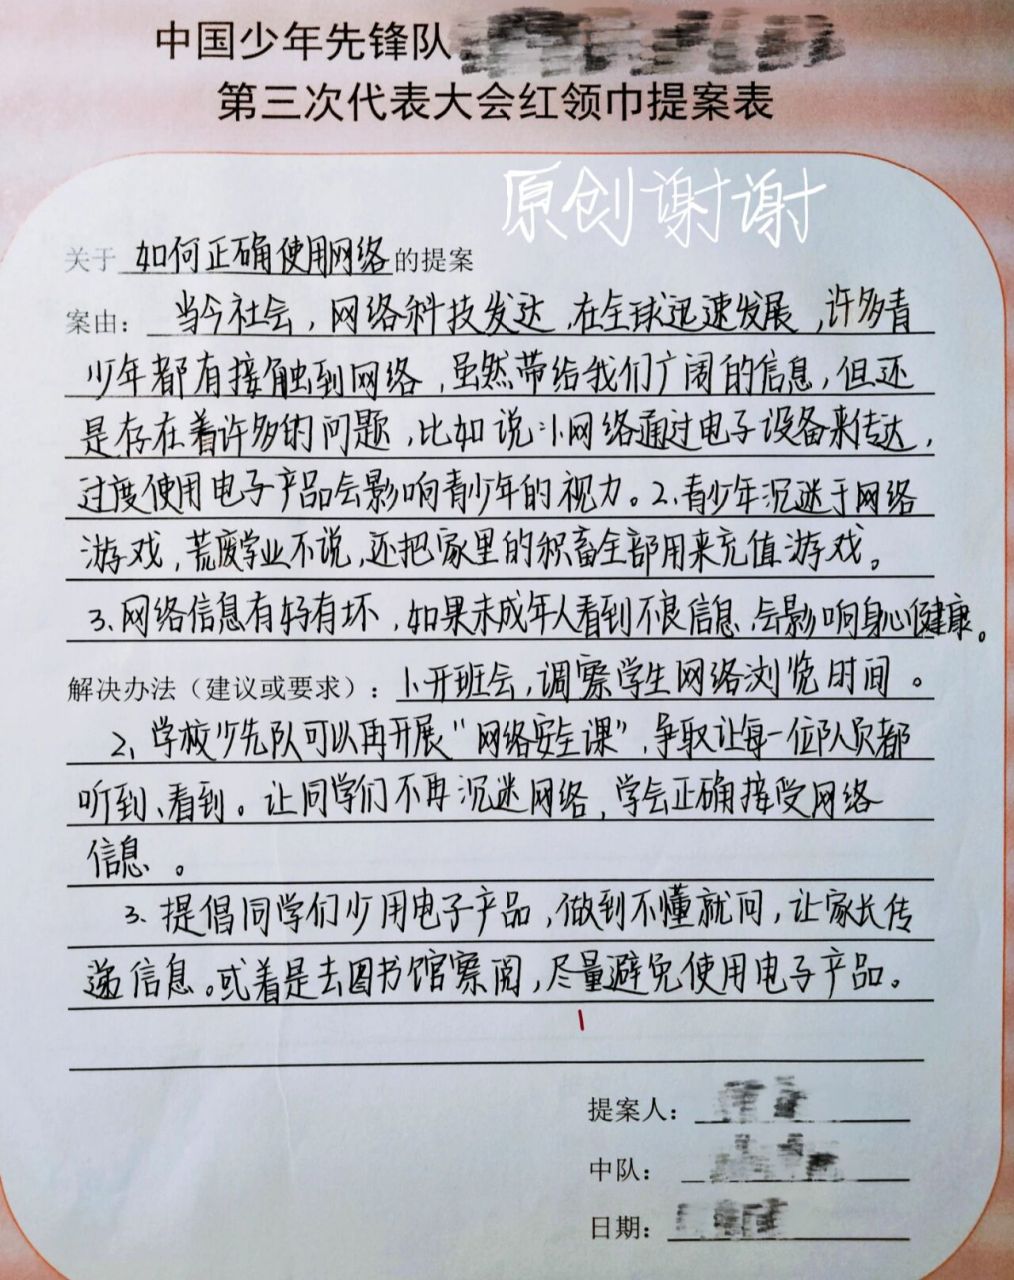 中国少年先锋队
第三次代表大会红领巾提案表
原创谢谢
关于 如何正确使用网络 的提案
案由：当今社会，网络科技发达，在全球迅速发展，许多青
少年都有接触到网络，虽然带给我们广阔的信息，但还
是存在着许多的问题，比如说：1.网络通过电子设备来传达，
过度使用电子产品会影响青少年的视力。2.青少年沉迷于网络
游戏，荒废学业不说，还把家里的积畜全部用来充值游戏。
3.网络信息有好有坏，如果未成年人看到不良信息，会影响身心健康。
解决办法（建议或要求）：1.开班会，调察学生网络浏览时间。
2、学校少先队可以再开展“网络安全课”，争取让每一位队员都
听到、看到。让同学们不再沉迷网络，学会正确接受网络
信息。
3、提倡同学们少用电子产品，做到不懂就问，让家长传
递信息。或着是去图书馆察阅，尽量避免使用电子产品。
提案人：
中队：
日期：